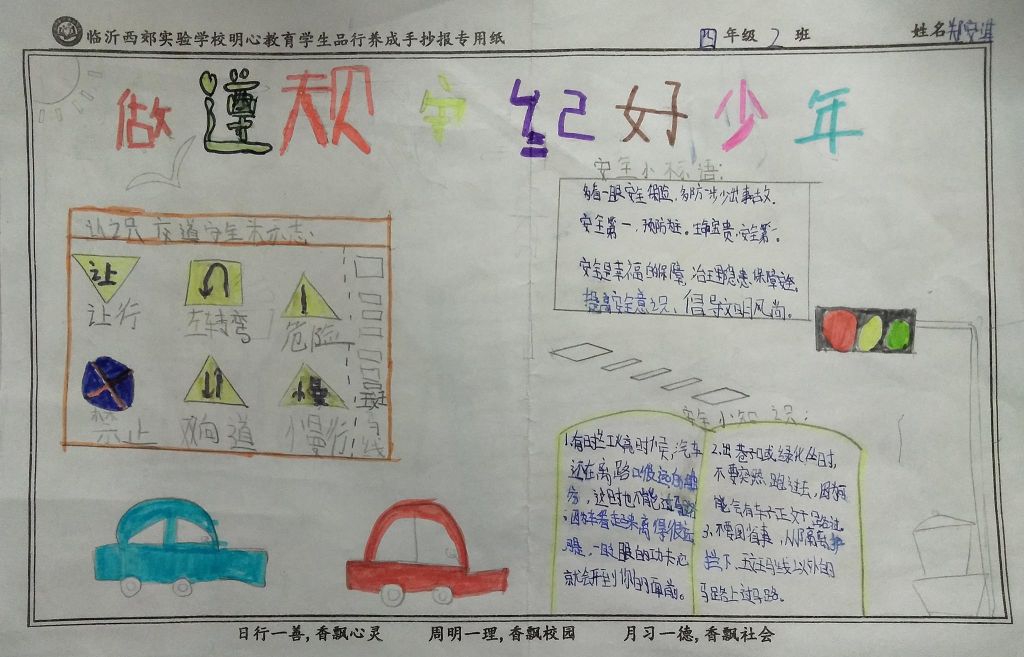 临沂西郊实验学校明心教育学生品行养成手抄报专用纸
四年级2班
姓名
做遵规守纪好少年
认识交通安全标志:
让
让行
左转弯
危险
禁止
双向道
慢
慢行
线
安全小标语:
多看一眼安全保险,多防一步少出事故.
安全第一,预防为主。生命宝贵,安全第一。
安全是幸福的保障,治理隐患保障
提高安全意识,倡导文明风尚。
安全小知识:
1.有时
汽车
还在离路口很远的地
方,这时也不能
看起来离得很远
一眨眼的功夫
就会开到你的面前。
2.出巷子口或绿化
时,
不要突然跑过去,因
能会有车子正
3.不要图省事,从隔离护
栏下、
以外的
马路上过马路。
日行一善,香飘心灵 周明一理,香飘校园 月习一德,香飘社会